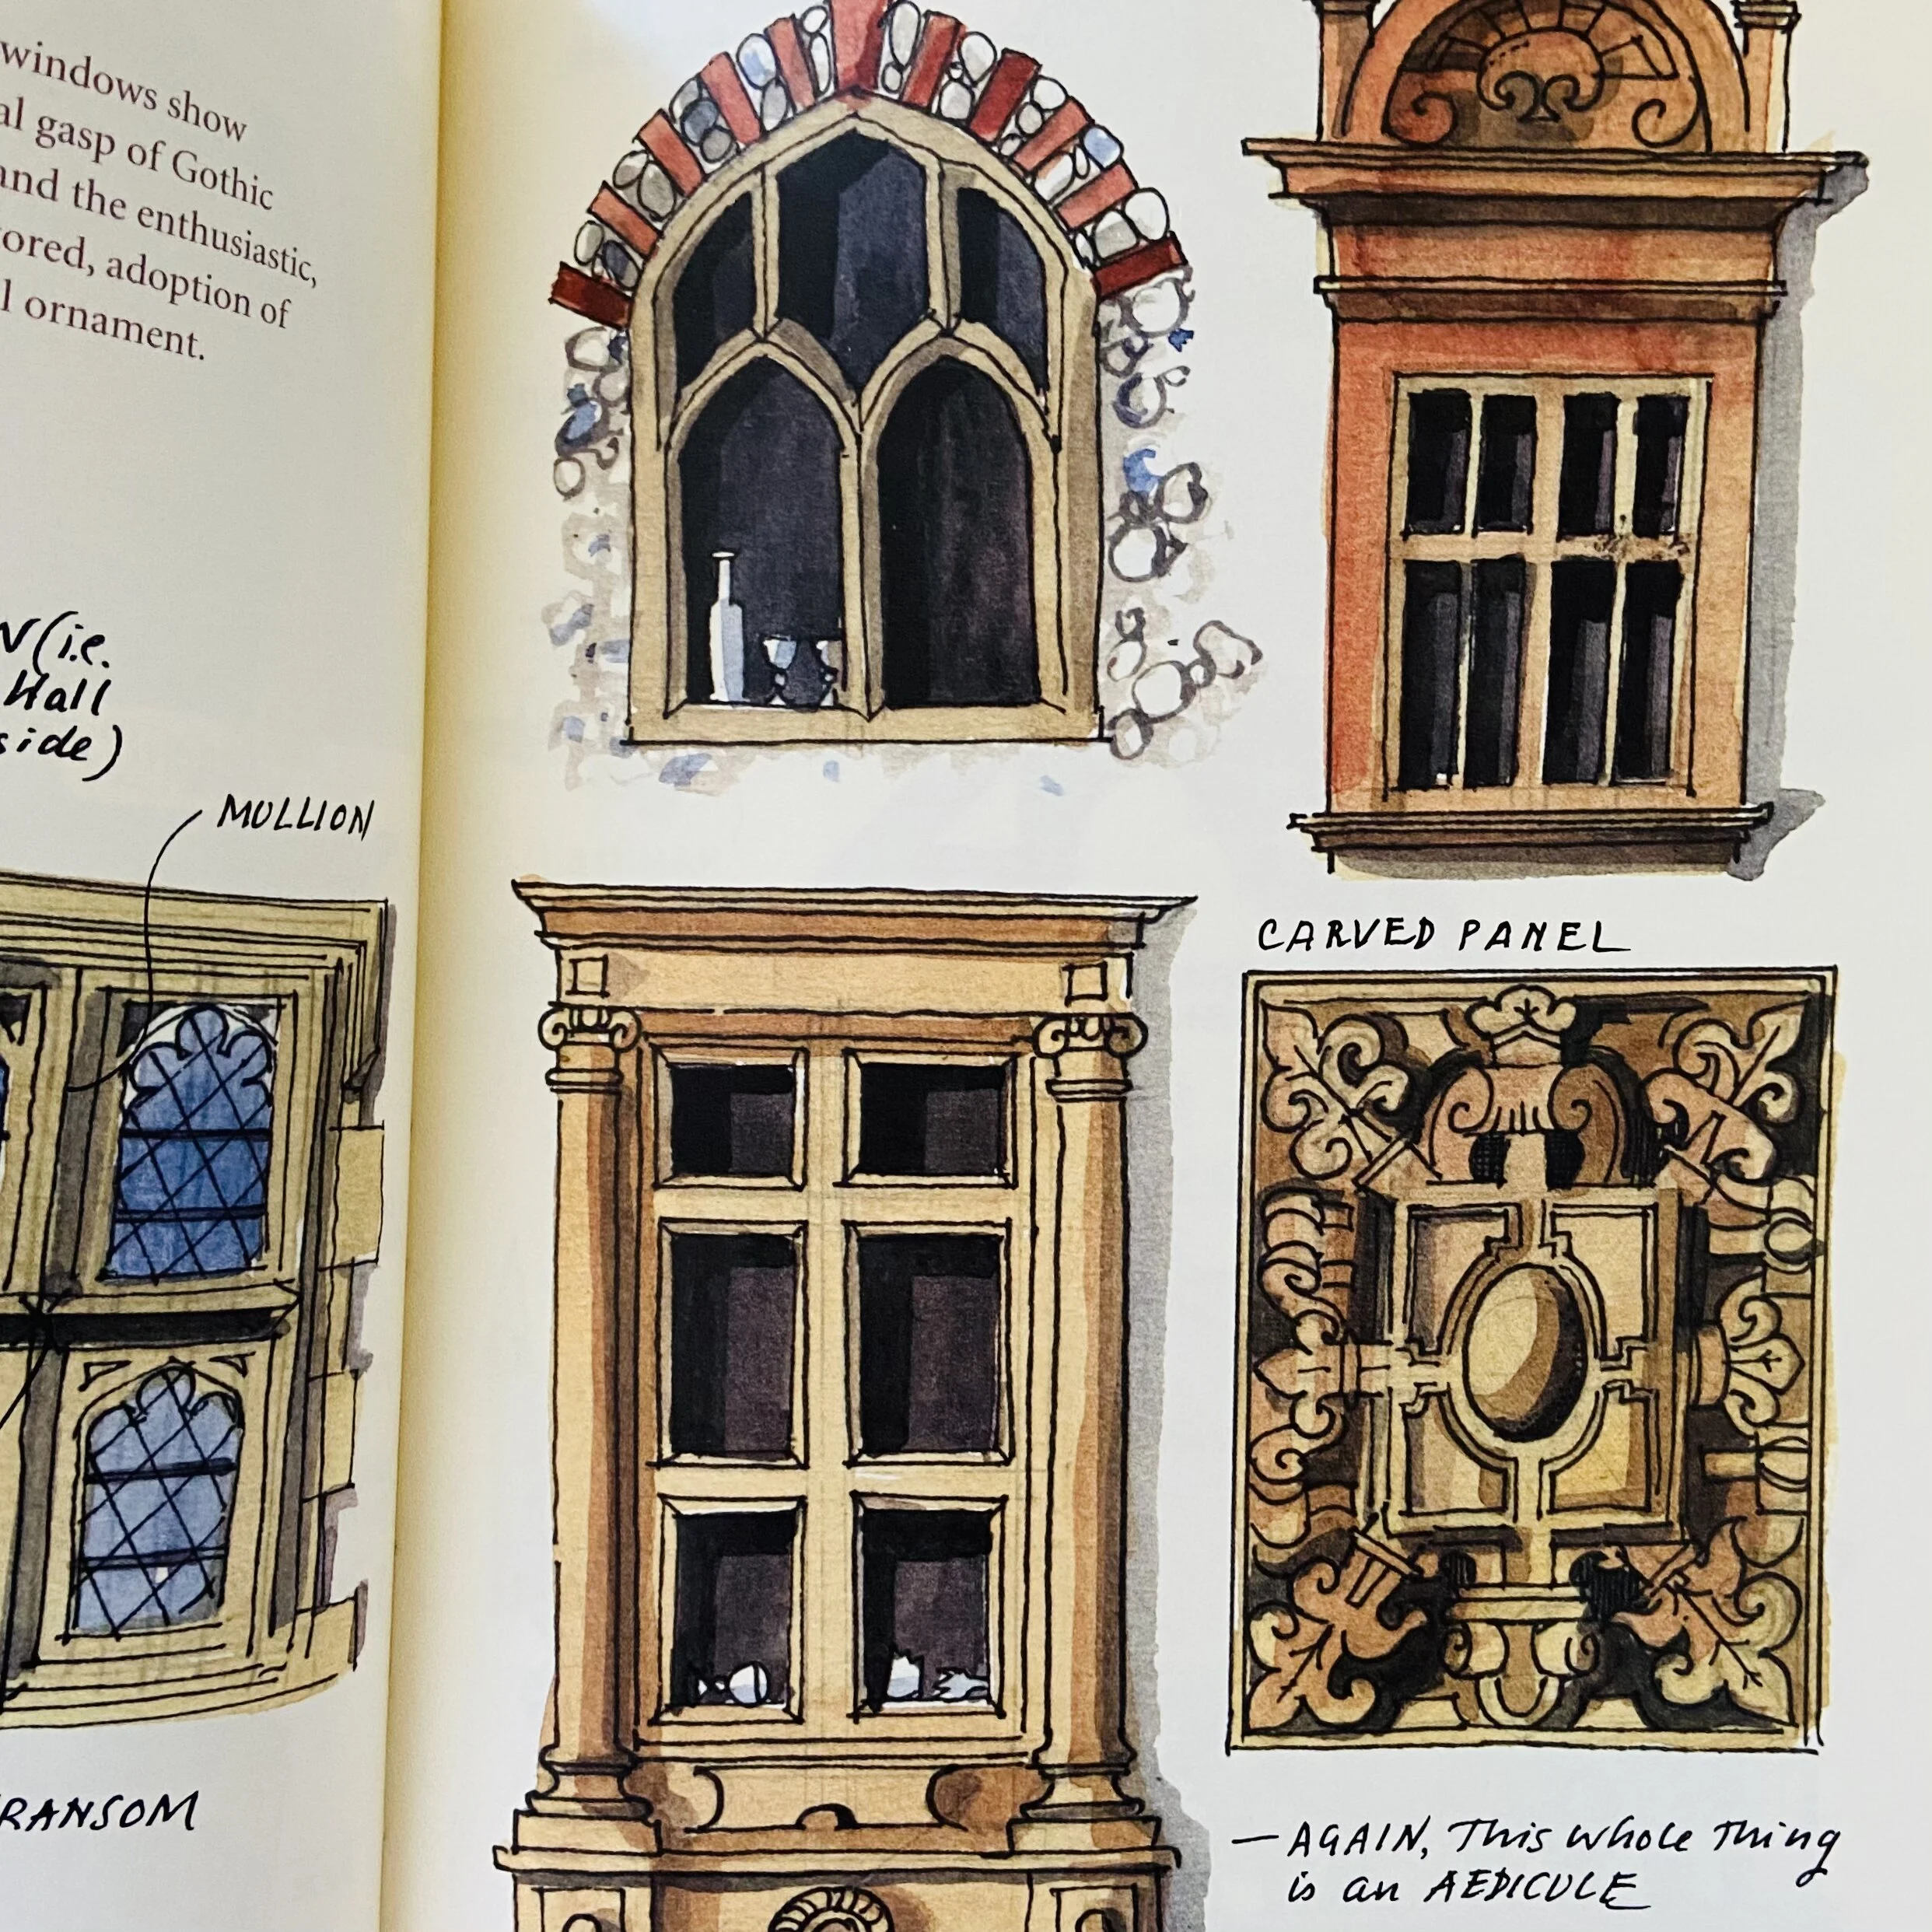 windows show
gasp of Gothic
and the enthusiastic,
adoption of
ornament.
(i.e.
Hall
side)
MULLION
CARVED PANEL
RANSOM
— AGAIN, This whole Thing
is an AEDICULE